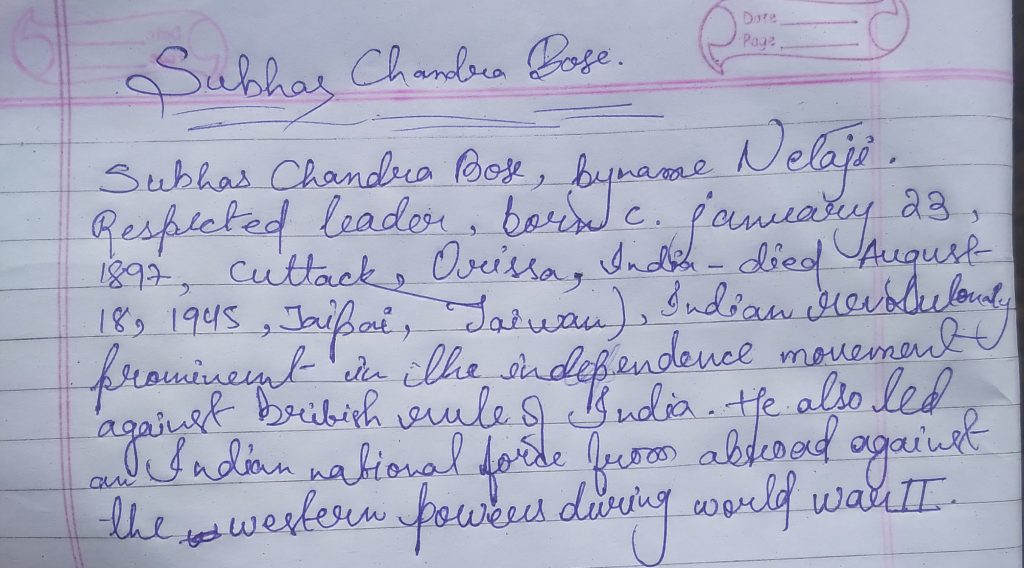 Date
Page
Subhas Chandra Bose.
Subhas Chandra Bose, byname Netaji.
Respected leader, born c. january 23,
1897, Cuttack, Orissa, India - died August
18, 1945, Taipai, Taiwan), Indian revolutionaly
prominent in the independence movement
against british rule of India. He also led
an Indian national force from abroad against
the western powers during world war II.